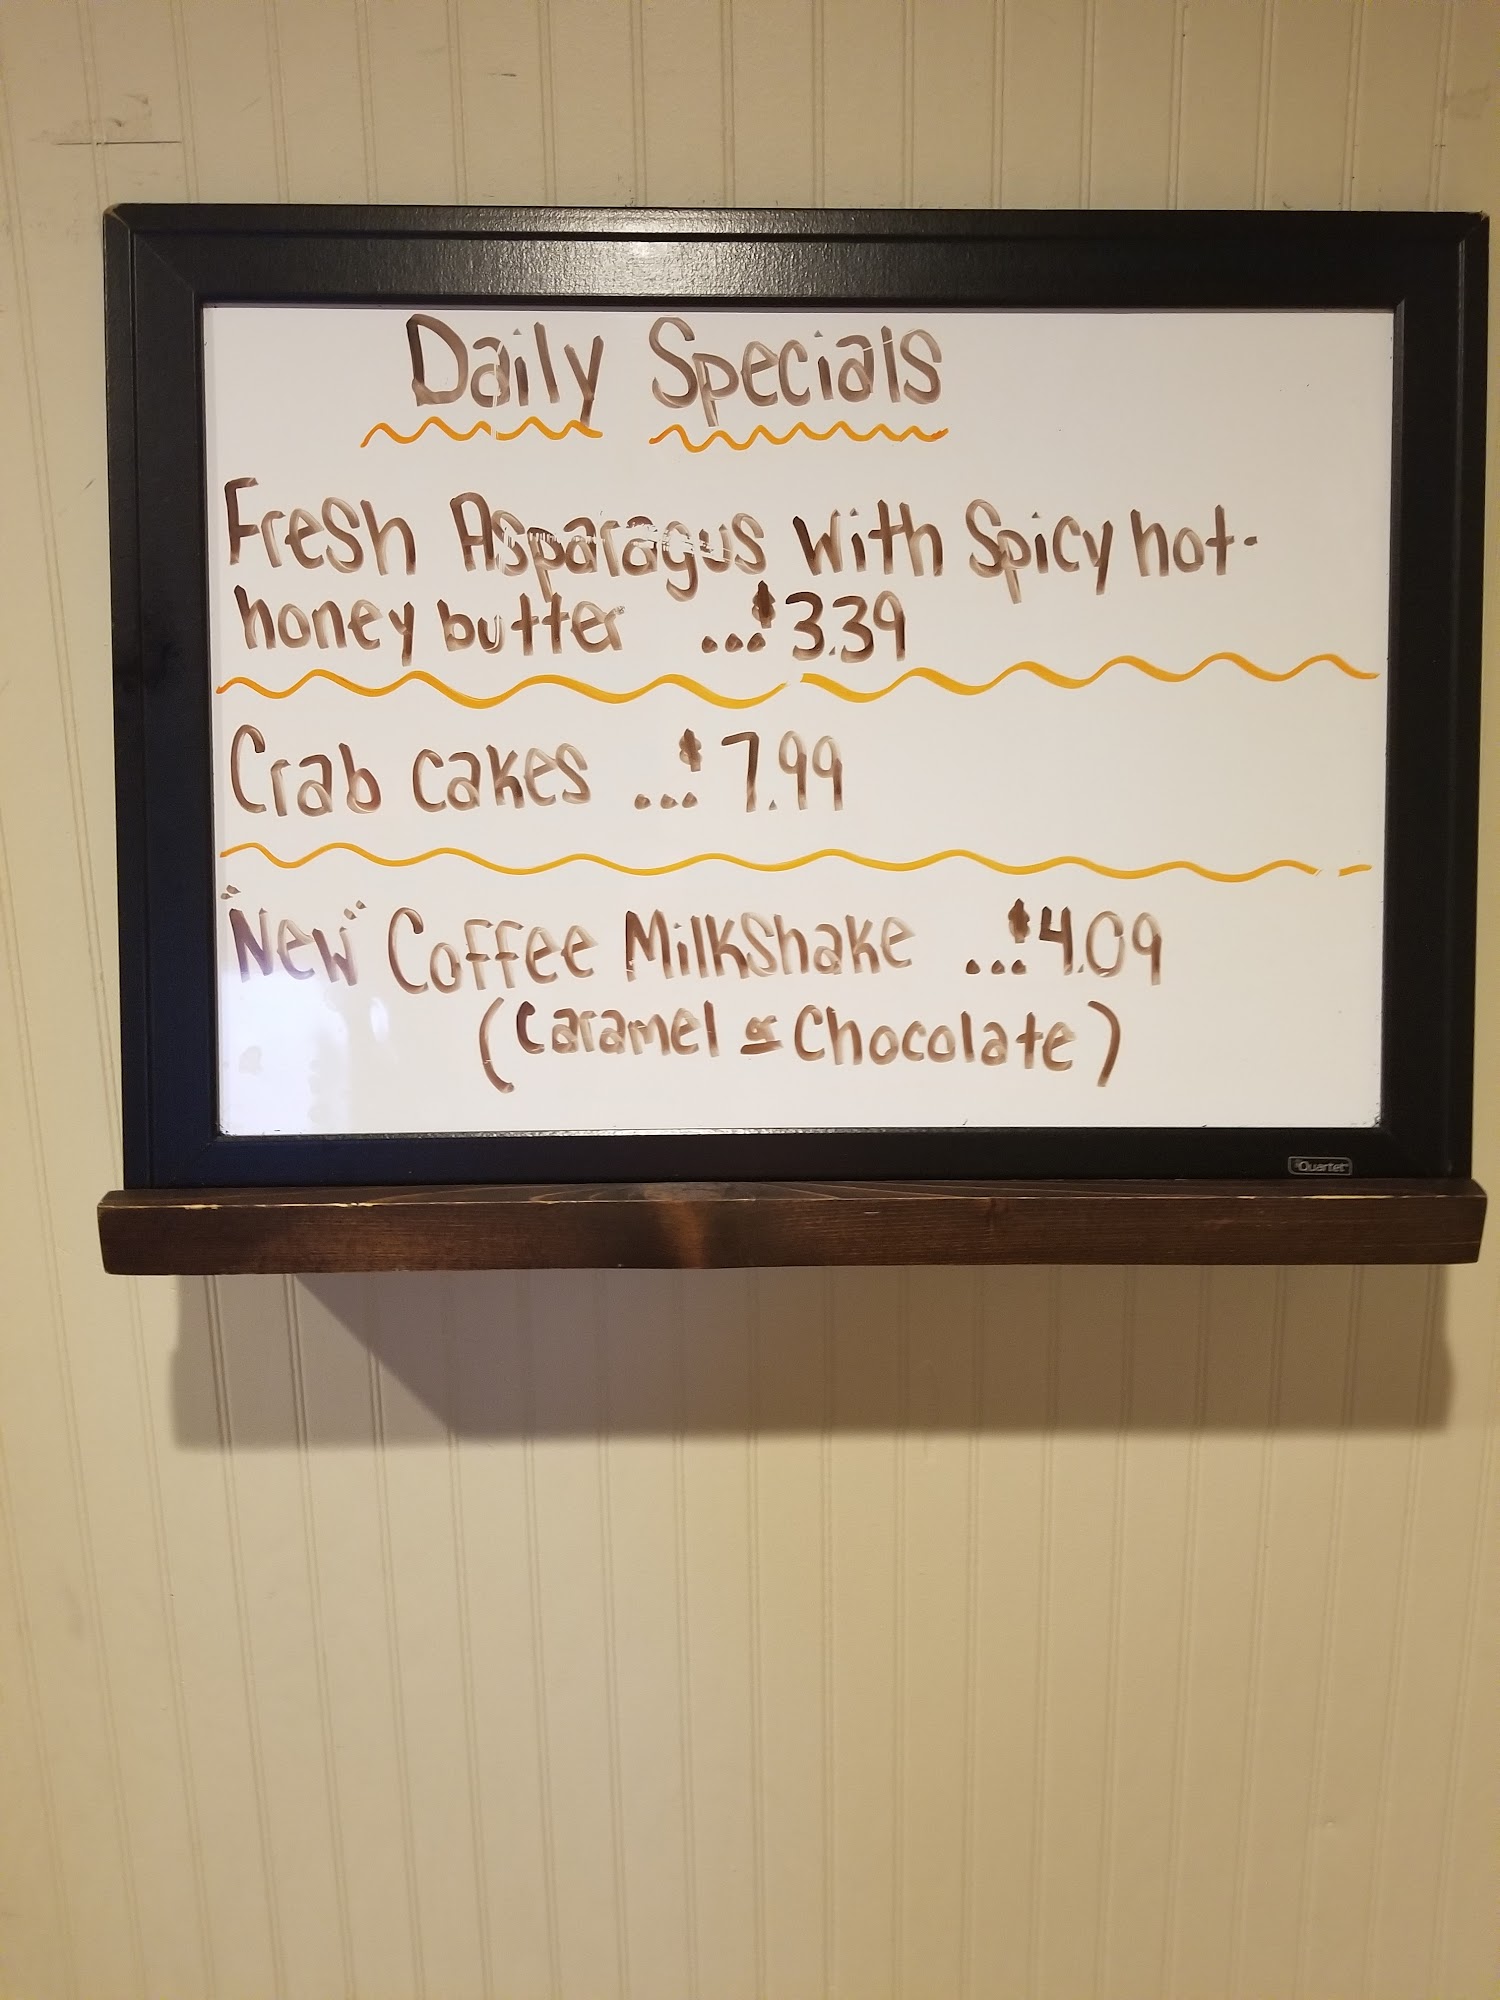 Daily Specials
Fresh Asparagus with Spicy hot-
honey butter ...$3.39
Crab cakes ...$7.99
"New" Coffee Milkshake ...$4.09
(Caramel or Chocolate)
Quartet